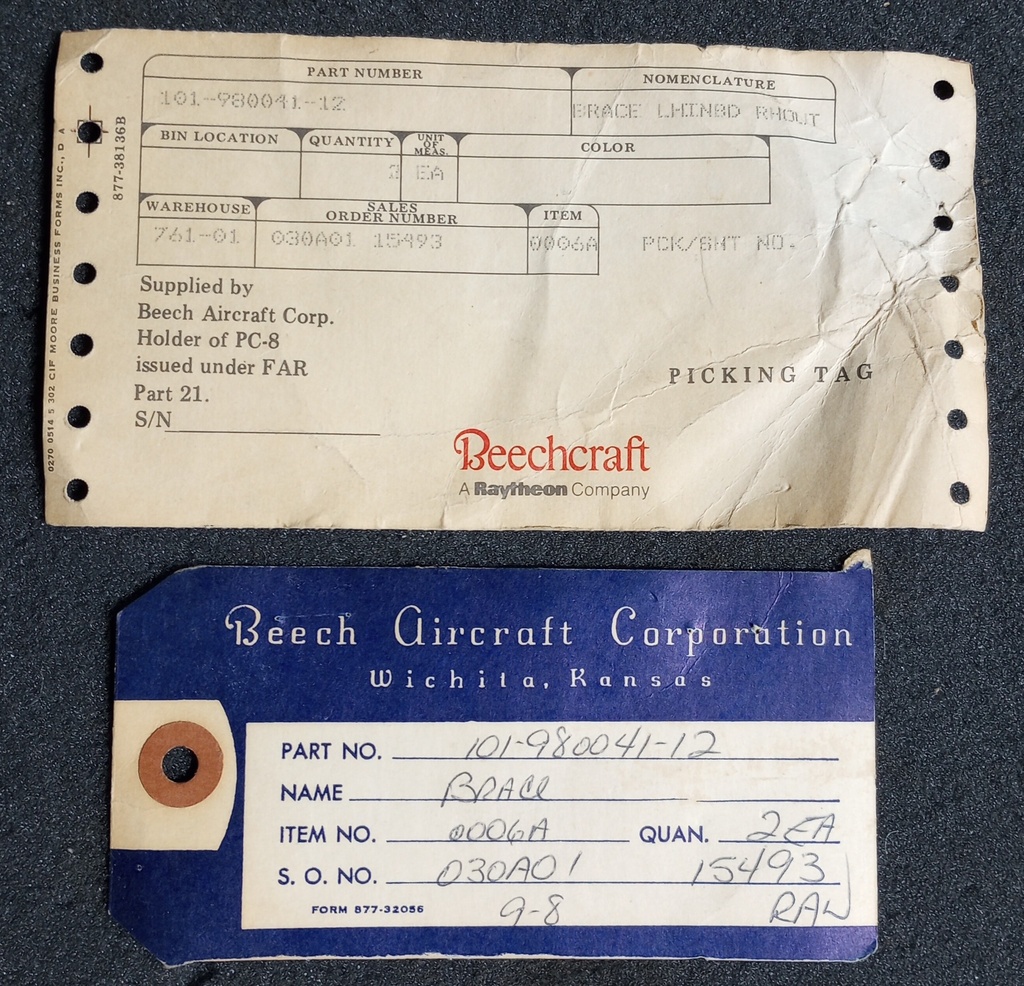 PART NUMBER
NOMENCLATURE
101-980041-12
BRACE LHINBD RHOUT
BIN LOCATION
QUANTITY
UNIT OF MEAS.
COLOR
2 EA
WAREHOUSE
SALES ORDER NUMBER
ITEM
761-01
030A01 15493
0006A
PCK/SHT NO.
Supplied by
Beech Aircraft Corp.
Holder of PC-8
issued under FAR
Part 21.
S/N
PICKING TAG
Beechcraft
A Raytheon Company
877-38136B
0270 0514 5 302 CIF MOORE BUSINESS FORMS INC., D A
Beech Aircraft Corporation
Wichita, Kansas
PART NO. 101-980041-12
NAME BRACE
ITEM NO. 0006A QUAN. 2 EA
S. O. NO. 030A01 15493
FORM 877-32056 9-8 RAW